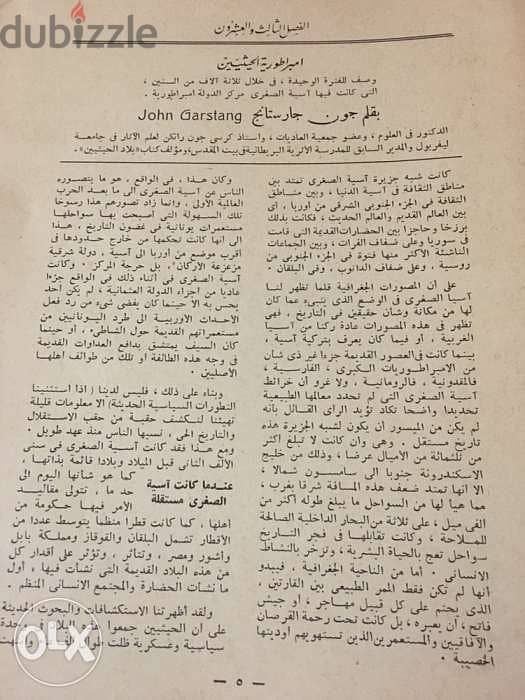 dubizzle
الفصل الثالث والعشرون
امبراطورية الحيثيين
وصف للفترة الوحيدة ، فى خلال ثلاثة آلاف من السنين ،
التى كانت فيها آسية الصغرى مركز الدولة امبراطورية .
بقلم جون جارستانج John Garstang
الدكتور فى العلوم ، وعضو جمعية العاديات ، واستاذ كرسى جون رانكن لعلم الآثار فى جامعة
ليفربول والمدير السابق للمدرسة الاثرية البريطانية فى بيت المقدس، ومؤلف كتاب «بلاد الحيثيين» .
كانت شبه جزيرة آسية الصغرى تمتد بين
مناطق الثقافة فى آسية الدنيا ، وبين مناطق
الثقافة فى الجزء الجنوبى الشرقى من أوربا ، اى
بين العالم القديم والعالم الحديث ، فكانت بذلك
برزخا وحاجزا بين الحضارات القديمة التى قامت
فى سوريا وعلى ضفاف الفرات ، وبين الجماعات
الناشئة الأكثر منها فتوة فى الجزء الجنوبى من
روسية ، وعلى ضفاف الدانوب ، وفى البلقان .
على أن المصورات الجغرافية قلما تظهر لنا
آسيا الصغرى فى الوضع الذى ينبىء عما كان
لها من مكانة وشأن حقيقين فى التاريخ ، فهى
تظهر فى هذه المصورات عادة ركنا من آسيا
الغربية ، او فيما كان يعرف بتركية آسية .
بينما كانت فى العصور القديمة جزءا غير ذى شأن
من الامبراطوريات الكبرى ، الفارسية ،
فالمقدونية ، فالرومانية . ولا غرو أن خرائط
آسية الصغرى التى لم تحدد معالمها الطبيعية
تحديدا واضحا تكاد تؤيد الرأى القائل بأنه
لم يكن من الميسور أن يكون لشبه الجزيرة هذه
تاريخ مستقل . وهى وان كانت لا تبلغ أكثر
من ثلثمائة من الأميال عرضا ، وذلك من خليج
الاسكندرونة جنوبا الى سامسون شمالا ،
الا أنها تمتد ضعف هذه المسافة شرقا بغرب ،
مما هيأ لها من السواحل ما يبلغ طوله أكثر من
ألفى ميل ، على ثلاثة من البحار الداخلية الصالحة
للملاحة ، وكانت تقابلها فى فجر التاريخ
سواحل تعج بالحياة البشرية ، وتزخر بالنشاط
الانسانى . أما من الناحية الجغرافية ، فيبدو
أنها لم تكن فقط الممر الطبيعى بين القارتين ،
الذى يحتم على كل قبيل مهاجر ، أو جيش
فاتح ، أن يعبره ، بل كانت تحت رحمة القرصان
والآفاقيين والمستعمرين الذين تستهويهم أوديتها
الخصيبة .
وكان هذا ، فى الواقع ، هو ما يتصوره
الناس عن آسية الصغرى الى ما بعد الحرب
العالمية الأولى ، وانما زاد تصورهم هذا رسوخا
تلك السهولة التى أصبحت بها سواحلها
مستعمرات يونانية فى غضون التاريخ ، هذا
الى أنها كانت تحكمها من خارج حدودها فى
أقرب موضع من أوربا الى آسيا ، دولة شرقية
مزعزعة الأركان ، بل حرجة المركز . وكانت
آسية الصغرى فى أثناء ذلك فى الواقع جزءا
عاديا من أجزاء الدولة العثمانية ، لم يكن أحد
يحس به الا حينما كان يفضى شىء من رد فعل
الأحداث الأوربية الى طرد اليونانيين من
مستعمراتهم القديمة حول الشاطىء ، أو حينما
كان السيف يمتشق بدافع العداوات القديمة
فى وجه هذه الطائفة أو تلك من طوائف أهلها
الأصليين .
وبناء على ذلك ، فليس لدينا ( اذا استثنينا
التطورات السياسية الحديثة) الا معلومات قليلة
تهيئنا لنكشف حقبة من حقب الاستقلال
والتاريخ الحى ، نسيها الناس منذ عهد طويل .
ومع هذا فقد كانت آسية الصغرى فى سنى
الألف الثانى قبل الميلاد وبلادا قائمة بذاتها ،
عندما كانت آسية
الصغرى مستقلة
كما هو شأنها اليوم الى
حد ما ، تتولى مقاليد
الأمر فيها حكومة من
أهلها ، كما كانت قطرا منظما يتوسط عددا من
الأقطار تشمل البلقان والقوقاز ومملكة بابل
وآشور ومصر ، وتتأثر ، وتؤثر على أقدار كل
من هذه البلاد القديمة التى نشأت فيها ، أول
ما نشأت الحضارة والمجتمع الانسانى المنظم .
ولقد أظهرتنا الاستكشافات والبحوث الحديثة
على أن الحيثيين جمعوا هذه البلاد فى وحدة
سياسية وعسكرية ظلت طوال
— ٥ —
OLX